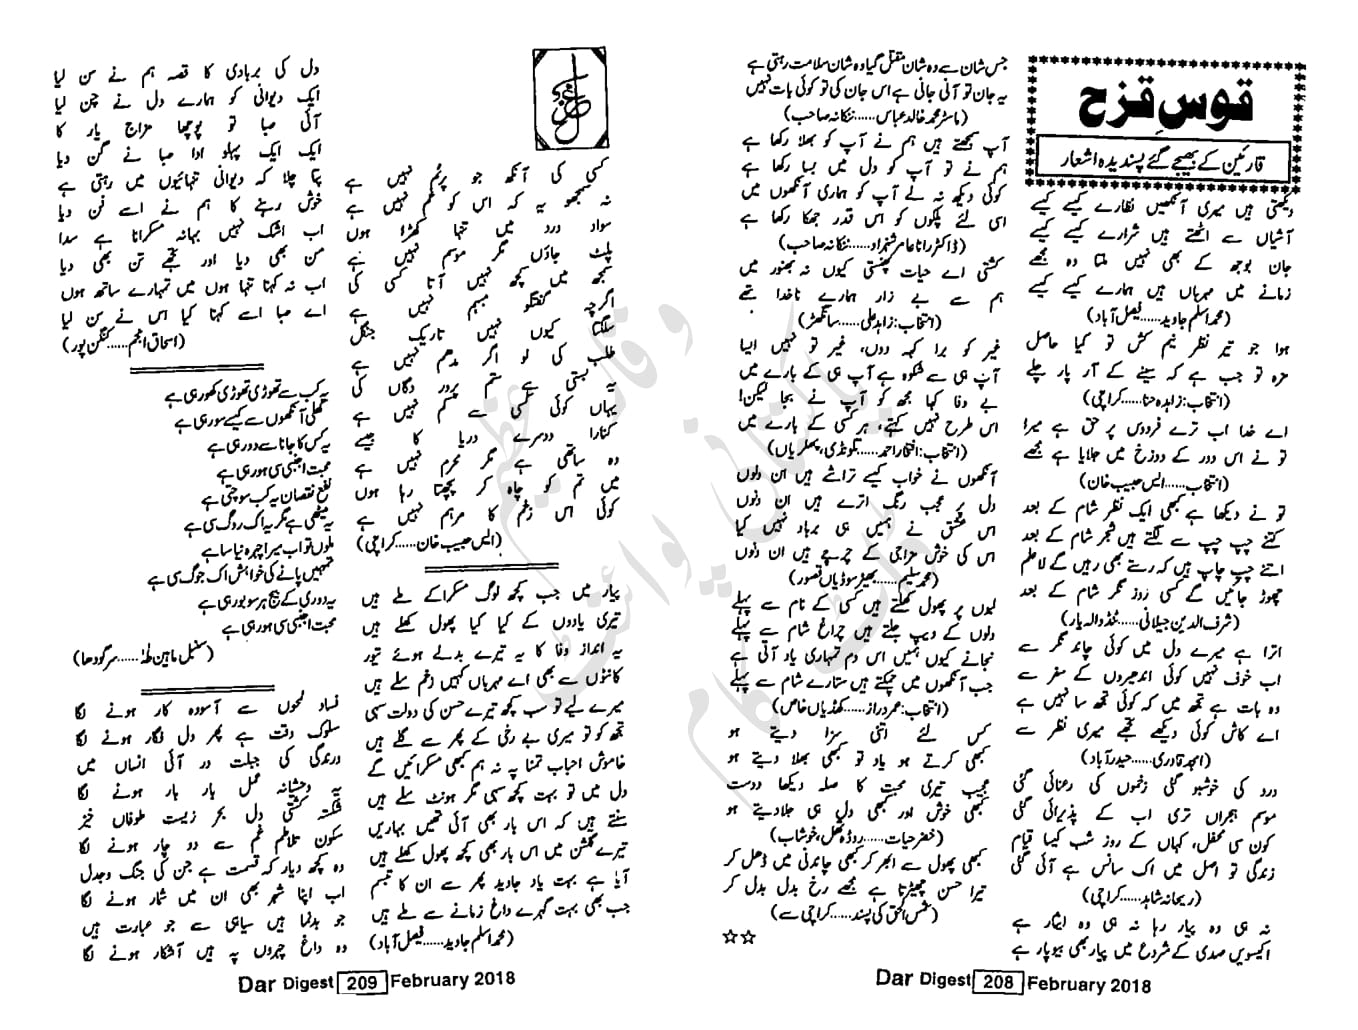 قوسِ قزح
قارئین کے بھیجے گئے پسندیدہ اشعار
دیکھتی ہیں میری آنکھیں نظارے کیسے کیسے
آشیاں سے اٹھتے ہیں شرارے کیسے کیسے
جان بوجھ کے بھی نہیں ملتا وہ مجھے
زمانے میں مہرباں ہیں ہمارے کیسے کیسے
(محمد اسلم جاوید......فیصل آباد)
ہوا جو تیر نظر نیم کش تو کیا حاصل
مزہ تو جب ہے کہ سینے کے آر پار چلے
(انتخاب: زاہدہ حنا......کراچی)
اے خدا اب ترے فردوس پر حق ہے میرا
تو نے اس دور کے دوزخ میں جلایا ہے مجھے
(انتخاب......ایس حبیب خان)
تو نے دیکھا ہے کبھی ایک نظر شام کے بعد
کتنے چپ چپ سے لگتے ہیں شجر شام کے بعد
اتنے چپ چاپ ہیں کہ رستے بھی رہیں گے لاعلم
چھوڑ جائیں گے کسی روز نگر شام کے بعد
(شرف الدین جیلانی......ٹنڈوالہ یار)
اترا ہے میرے دل میں کوئی چاند نگر سے
اب خوف نہیں کوئی اندھیروں کے سفر سے
وہ بات ہے تجھ میں کہ کوئی تجھ سا نہیں ہے
اے کاش کوئی دیکھے تجھے میری نظر سے
(امجد قادری......حیدر آباد)
درد کی خوشبو گئی زخموں کی رعنائی گئی
موسم ہجراں تری اب کے پذیرائی گئی
کون سی محفل، کہاں کے روز شب کیسا قیام
زندگی تو اصل میں اک سانس ہے آئی گئی
(ریحانہ شاہد......کراچی)
نہ ہی وہ پیار رہا نہ ہی وہ ایثار ہے
اکیسویں صدی کے شروع میں پیار بھی بیوپار ہے
جس شان سے وہ شان مقتل گیا وہ شان سلامت رہتی ہے
یہ جان تو آنی جانی ہے اس جان کی تو کوئی بات نہیں
(ماسٹر محمد خالد عباس......ننکانہ صاحب)
آپ سمجھتے ہیں ہم نے آپ کو بھلا رکھا ہے
ہم نے تو آپ کو دل میں بسا رکھا ہے
کوئی دیکھ نہ لے آپ کو ہماری آنکھوں میں
اسی لئے پلکوں کو اس قدر جھکا رکھا ہے
(ڈاکٹر رانا عامر شہزاد......ننکانہ صاحب)
کشتی اے حیات پھنستی کیوں نہ بھنور میں
ہم سے بے زار ہمارے ناخدا تھے
(انتخاب: زاہد علی......سانگھڑ)
غیر کو برا کہہ دوں، غیر تو نہیں ایسا
آپ ہی سے شکوہ ہے آپ ہی کے بارے میں
بے وفا کہا مجھ کو آپ نے بجا لیکن!
اس طرح نہیں کہتے، ہر کسی کے بارے میں
(انتخاب: افتخار احمد......گونڈی، پھلریاں)
آنکھوں نے خواب کیسے تراشے ہیں ان دنوں
دل پر عجب رنگ اترے ہیں ان دنوں
اس عشق نے ہمیں ہی برباد نہیں کیا
اس کی خوش مزاجی کے چرچے ہیں ان دنوں
(محمد سلیم......بھیڑ سوڈیاں قصور)
لبوں پر پھول کھلتے ہیں کسی کے نام سے پہلے
دلوں کے دیپ جلتے ہیں چراغ شام سے پہلے
نجانے کیوں ہمیں اس دم تمہاری یاد آتی ہے
جب آنکھوں میں چمکتے ہیں ستارے شام سے پہلے
(انتخاب: عمر دراز......کھڈیاں خاص)
کس لئے اتنی سزا دیتے ہو
کبھی کرتے ہو یاد تو کبھی بھلا دیتے ہو
عجیب تیری محبت کا صلہ دیکھا دوست
کبھی خوش اور کبھی دل ہی جلا دیتے ہو
(خضر حیات......روڈہ تھل، خوشاب)
کبھی پھول سے ابھر کر کبھی چاندنی میں ڈھل کر
تیرا حسن چھیڑتا ہے مجھے رخ بدل بدل کر
(شمس الحق کی پسند......کراچی سے)
☆☆
Dar Digest 208 February 2018
کسی کی آنکھ جو پرنم نہیں ہے
نہ سمجھو یہ کہ اس کو غم نہیں ہے
سواد درد میں تنہا کھڑا ہوں
پلٹ جاؤں مگر موسم نہیں ہے
سمجھ میں کچھ نہیں آتا کسی کی
اگرچہ گفتگو مبہم نہیں ہے
سلگتا کیوں نہیں تاریک جنگل
طلب کی لو اگر مدھم نہیں ہے
یہ بستی ہے ستم پرور دگاں کی
یہاں کوئی کسی سے کم نہیں ہے
کنارا دوسرے دریا کا جیسے
وہ ساتھی ہے مگر محرم نہیں ہے
میں تم کو چاہ کر پچھتا رہا ہوں
کوئی اس زخم کا مرہم نہیں ہے
(ایس حبیب خان......کراچی)
پیار میں جب کچھ لوگ مسکرا کے ملے ہیں
تیری یادوں کے کیا کیا پھول کھلے ہیں
یہ انداز وفا کا یہ تیرے بدلے ہوئے تیور
کانٹوں سے بھی اے مہرباں کہیں زخم سلے ہیں
میرے لیے تو سب کچھ تیرے حسن کی دولت سہی
تجھ کو تو میری بے رخی کے پھر سے گلے ہیں
خاموش احباب تمنا پہ نہ ہم کبھی مسکرائیں گے
دل میں تو بہت کچھ سہی مگر ہونٹ سلے ہیں
سنتے ہیں کہ اس بار بھی آئی تھیں بہاریں
تیرے گلشن میں اس بار بھی کچھ پھول کھلے ہیں
آیا ہے بہت یاد جاوید پھر سے ان کا تبسم
جب بھی بہت گہرے داغ زمانے سے ملے ہیں
(محمد اسلم جاوید......فیصل آباد)
دل کی بربادی کا قصہ ہم نے سن لیا
ایک دیوانی کو ہمارے دل نے چن لیا
آئی صبا تو پوچھا مزاج یار کا
ایک ایک پہلو ادا صبا نے گن دیا
پتا چلا کہ دیوانی تنہائیوں میں رہتی ہے
خوش رہنے کا ہم نے اسے فن دیا
اب اشک نہیں بہانہ مسکرانا ہے سدا
من بھی دیا اور تجھے تن بھی دیا
اب نہ کہنا تنہا ہوں میں تمہارے ساتھ ہوں
اے صبا اسے کہنا کیا اس نے سن لیا
(اسحاق انجم......کنگن پور)
یہ کب سے تھوڑی تھوڑی کھو رہی ہے
کھلی آنکھوں سے کیسے سو رہی ہے
یہ کس کا جانا سے دور ہی ہے
محبت اجنبی سی ہو رہی ہے
نفع نقصان یہ کب سوچتی ہے
یہ میٹھی ہے مگر یہ اک روگ سی ہے
ملوں تو اب میرا چہرہ نیا سا ہے
تمہیں پانے کی خواہش اک جوگ سی ہے
یہ دوری کے بیج ہر سو بو رہی ہے
محبت اجنبی سی ہو رہی ہے
(سنبل ماہین طہٰ......سرگودھا)
فساد لمحوں سے آسودہ کار ہونے لگا
سلوک وقت ہے پھر دل لگار ہونے لگا
درندگی کی جبلت در آئی انساں میں
یہ وحشیانہ عمل بار بار ہونے لگا
شکستہ کشتی دل بحر زیست طوفاں خیز
سکون تلاطم غم سے دو چار ہونے لگا
وہ کچھ دیار کہ قسمت ہے جن کی جنگ وجدل
اب اپنا شہر بھی ان میں شمار ہونے لگا
جو بدنما ہیں سیاہی سے جو عبارت ہیں
وہ داغ چہروں پہ ہیں آشکار ہونے لگا
Dar Digest 209 February 2018